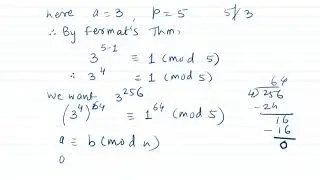 here a = 3 , p = 5 5∤3
∴ By fermat's Thm,
3^(5-1) ≡ 1 (mod 5)
∴ 3^4 ≡ 1 (mod 5)
we want 3^256
(3^4)^64 ≡ 1^64 (mod 5)
a ≡ b (mod n)
0
64
4)256
-24
16
-16
0